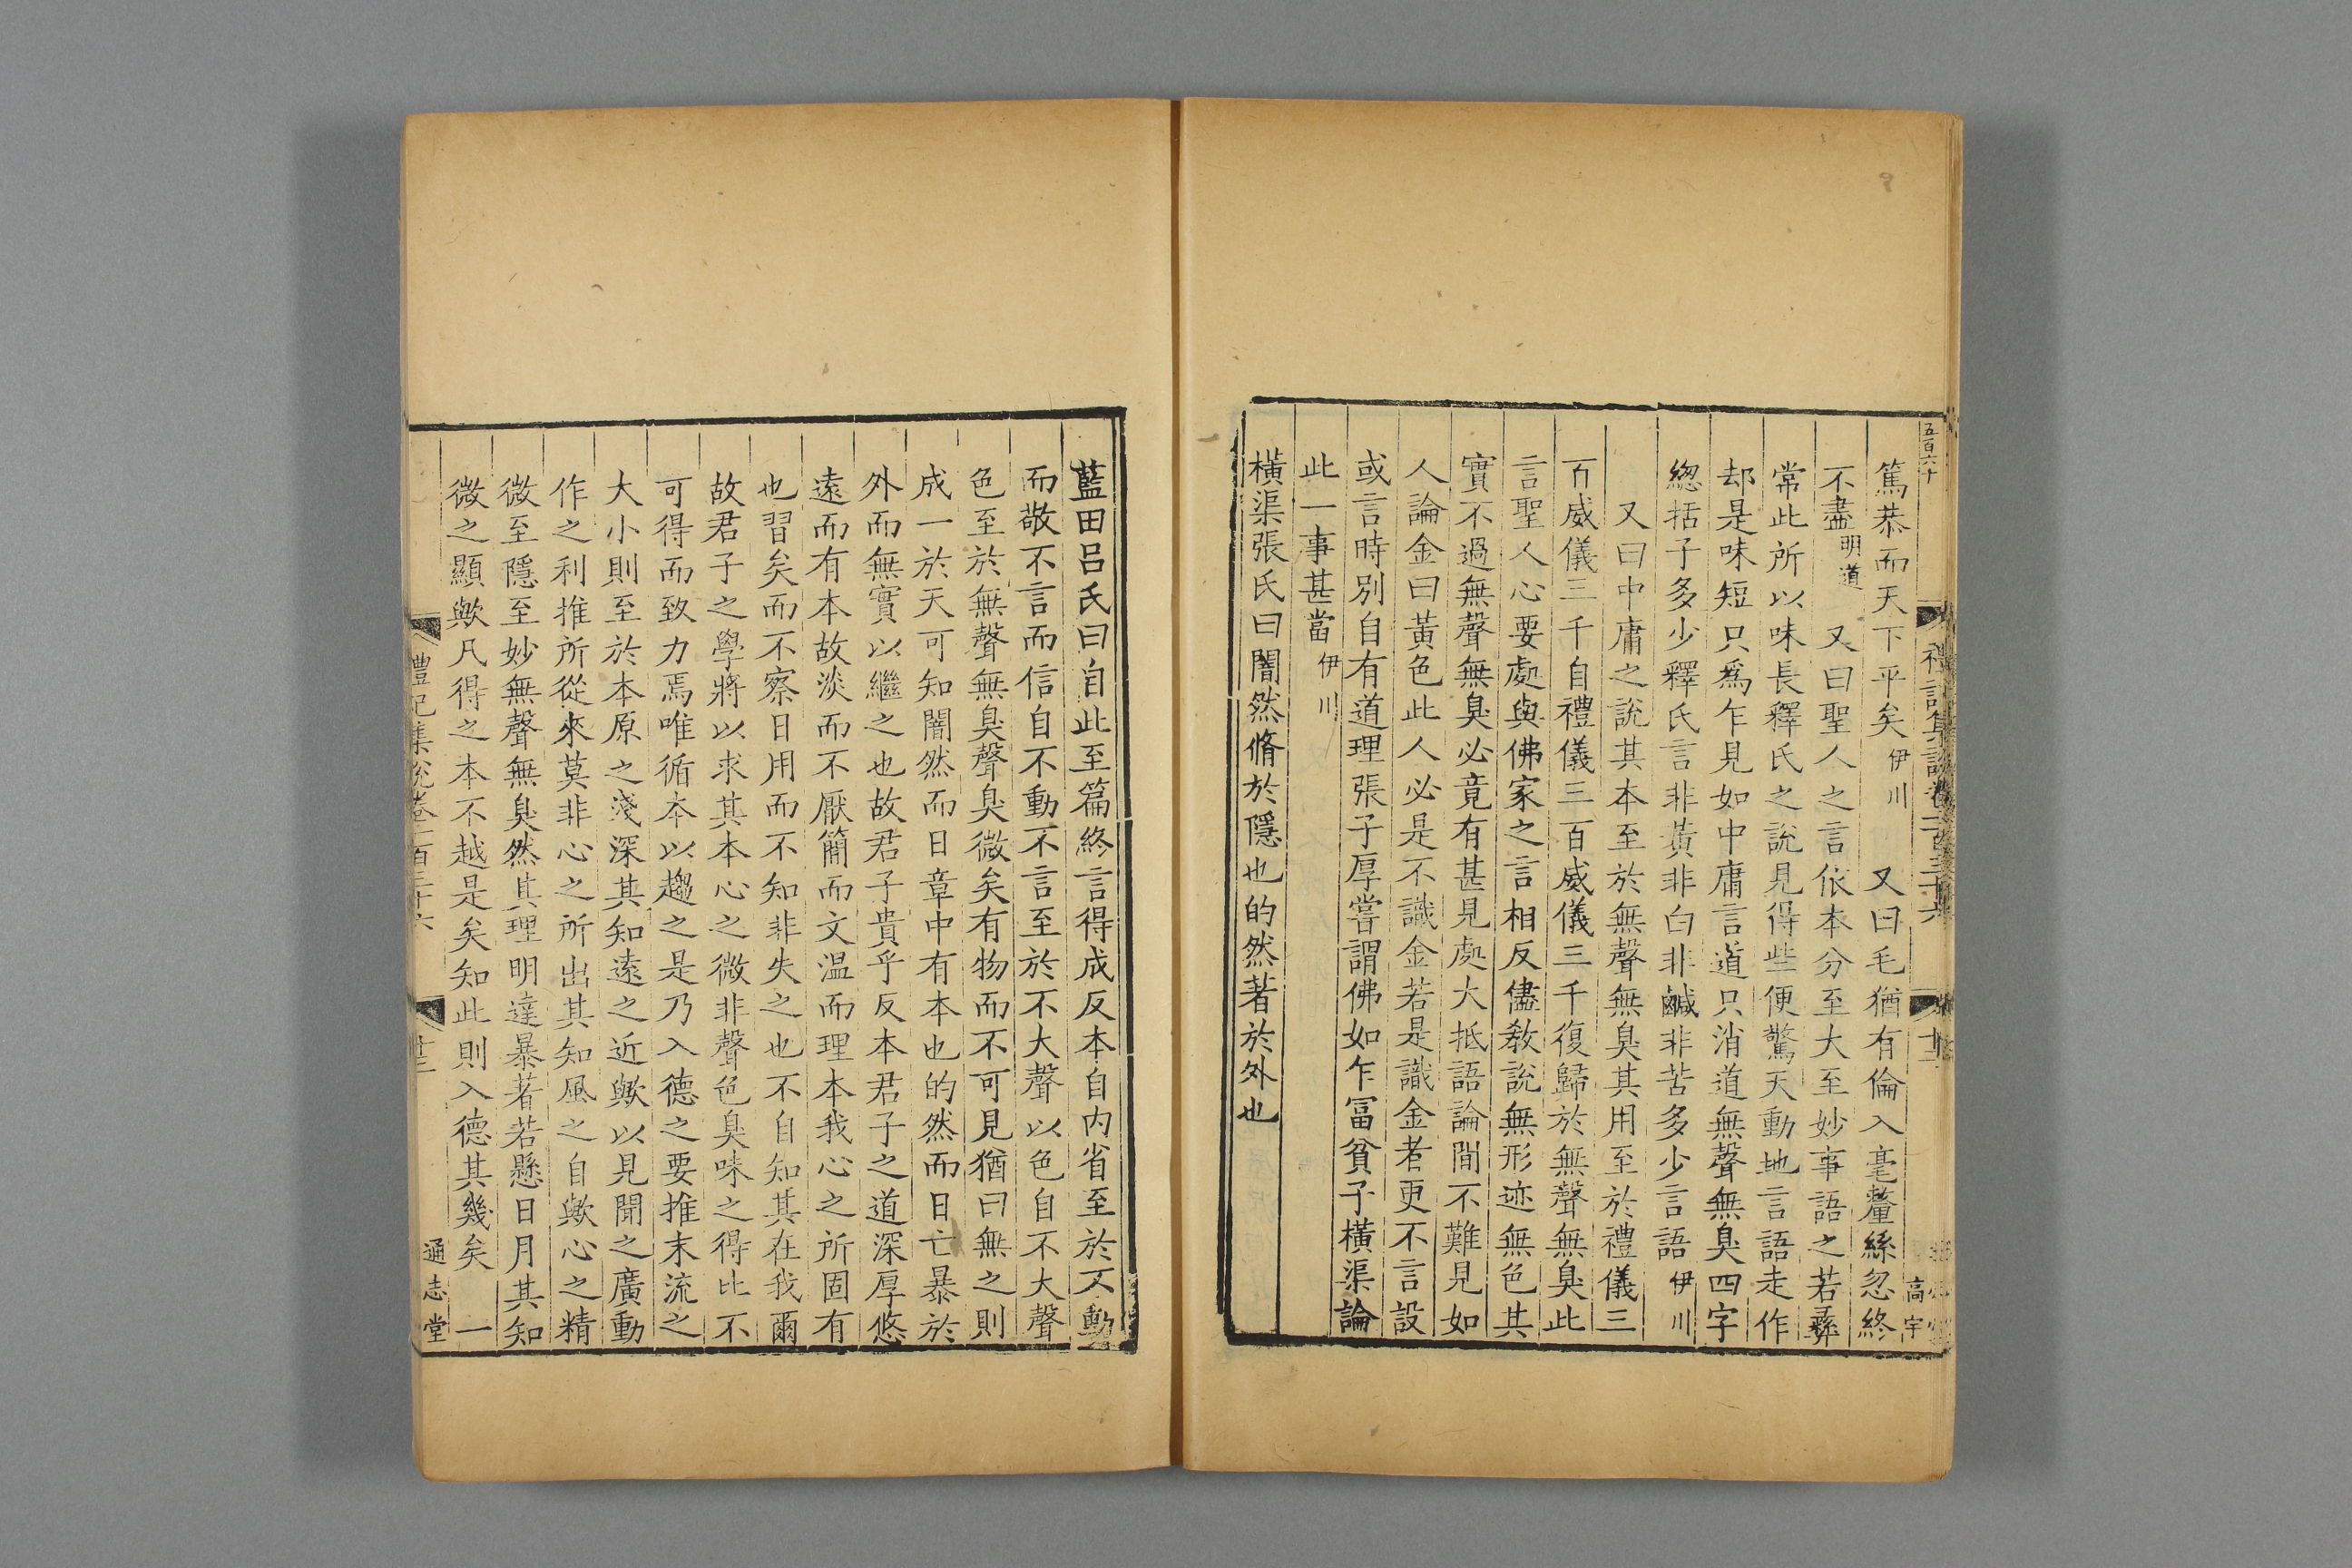 五百六十
禮記集說卷一百三十六
十二
高宇
篤恭而天下平矣伊川 又曰毛猶有倫入毫釐絲忽終
不盡明道 又曰聖人之言依本分至大至妙事語之若彞
常此所以味長釋氏之說見得些便驚天動地言語走作
却是味短只爲乍見如中庸言道只消道無聲無臭四字
緫括子多少釋氏言非黃非白非鹹非苦多少言語伊川
又曰中庸之說其本至於無聲無臭其用至於禮儀三
百威儀三千自禮儀三百威儀三千復歸於無聲無臭此
言聖人心要處與佛家之言相反儘敎說無形迹無色其
實不過無聲無臭必竟有甚見處大抵語論閒不難見如
人論金曰黃色此人必是不識金若是識金者更不言設
或言時別自有道理張子厚嘗謂佛如乍冨貧子橫渠論
此一事甚當伊川
橫渠張氏曰闇然脩於隱也的然著於外也
藍田呂氏曰自此至篇終言得成反本自内省至於不動
而敬不言而信自不動不言至於不大聲以色自不大聲
色至於無聲無臭聲臭微矣有物而不可見猶曰無之則
成一於天可知闇然而日章中有本也的然而日亡暴於
外而無實以繼之也故君子貴乎反本君子之道深厚悠
遠而有本故淡而不厭簡而文温而理本我心之所固有
也習矣而不察日用而不知非失之也不自知其在我爾
故君子之學將以求其本心之微非聲色臭味之得比不
可得而致力焉唯循本以趨之是乃入德之要推末流之
大小則至於本原之淺深其知遠之近歟以見聞之廣動
作之利推所從來莫非心之所出其知風之自歟心之精
微至隱至妙無聲無臭然其理明達暴著若懸日月其知
微之顯歟凡得之本不越是矣知此則入德其幾矣 一
禮記集說卷一百三十六
十二
通志堂